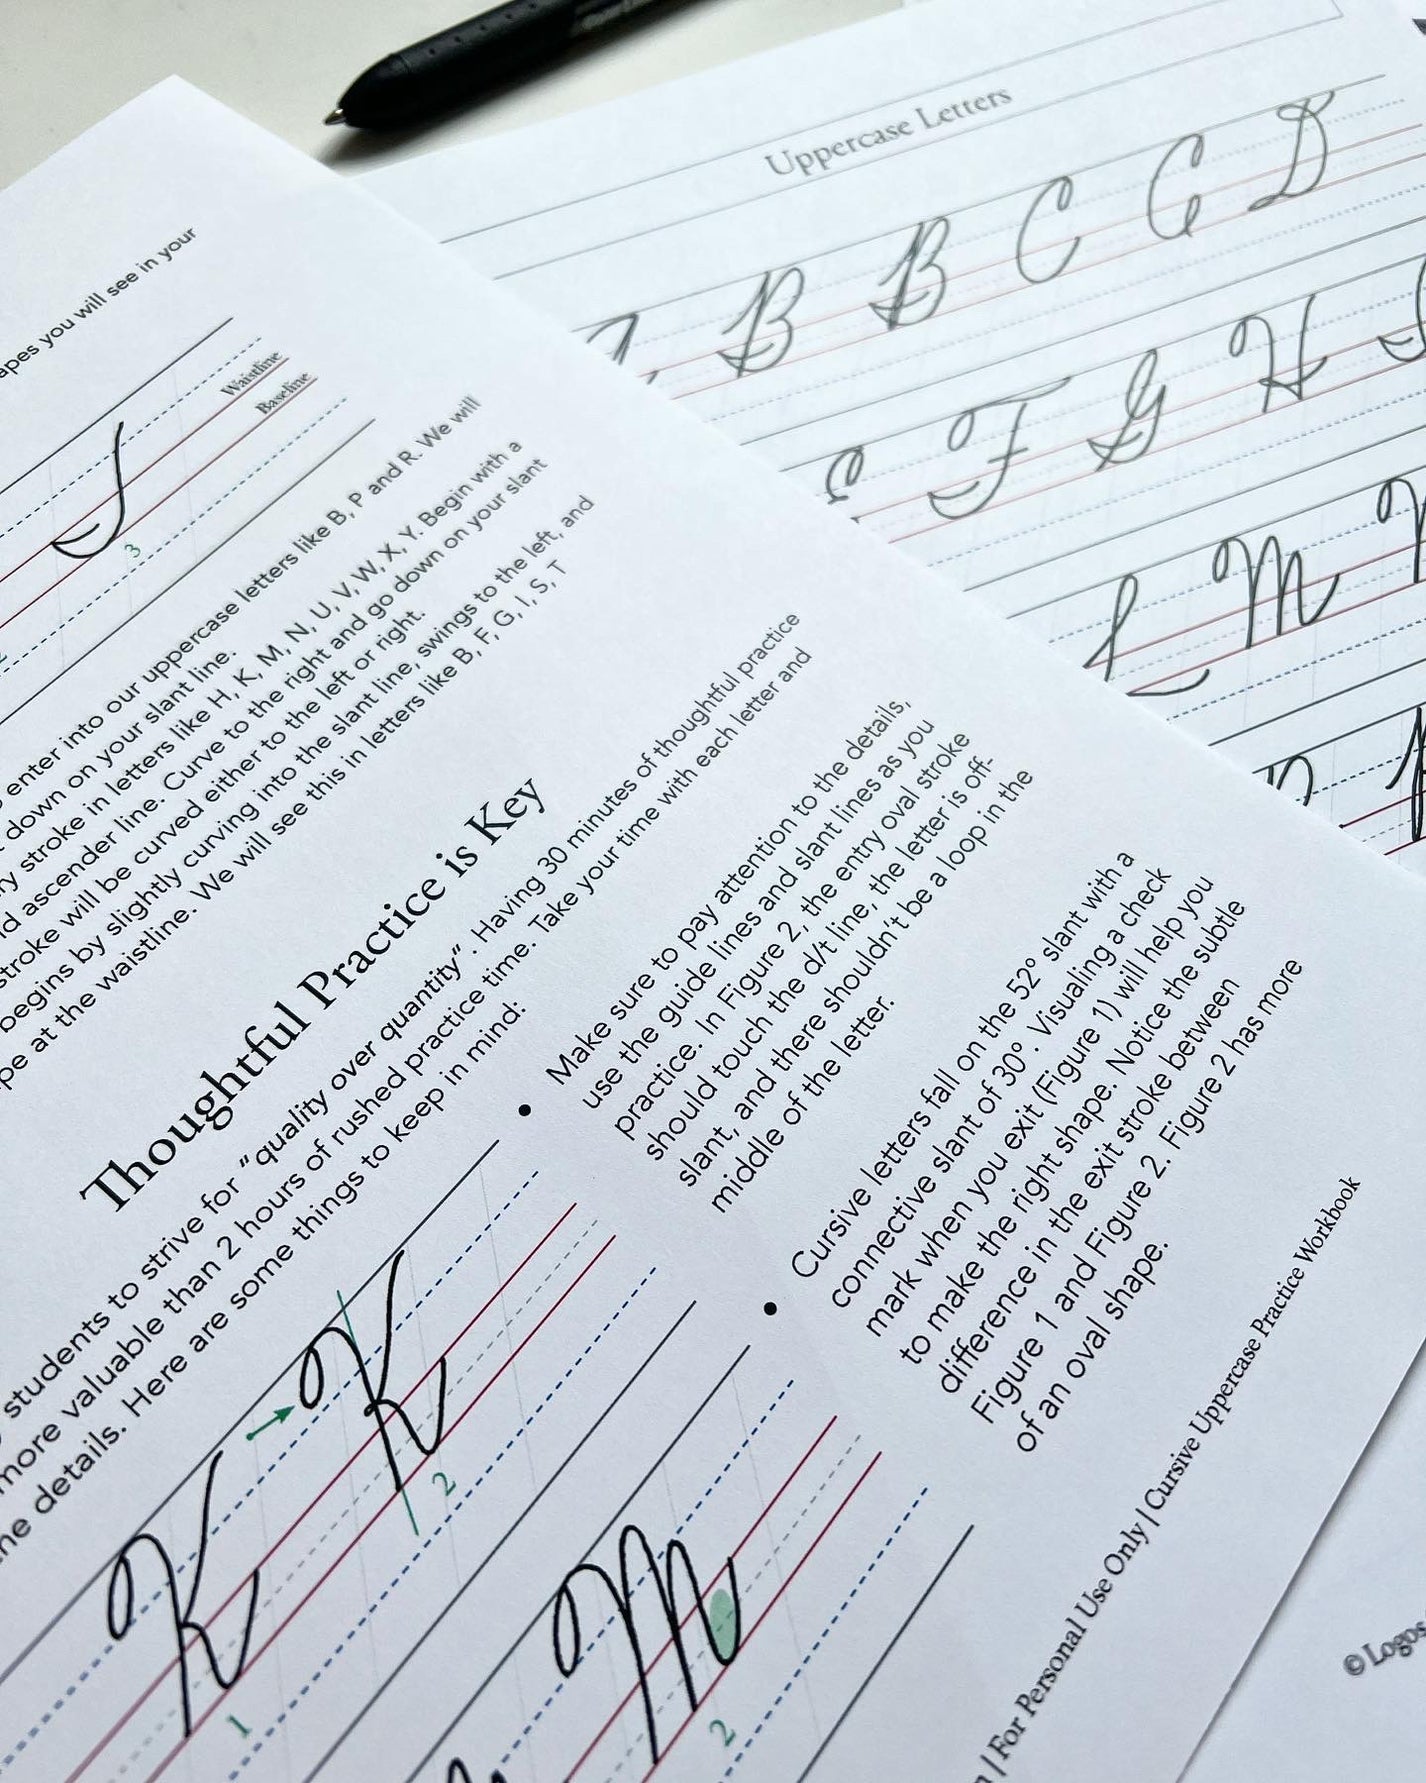 Uppercase Letters
B B C C D
E F G H
L M
apes you will see in your
Waistline
Baseline
3
enter into our uppercase letters like B, P and R. We will
down on your slant line.
stroke in letters like H, K, M, N, U, V, W, X, Y. Begin with a
ascender line. Curve to the right and go down on your slant
stroke will be curved either to the left or right.
begins by slightly curving into the slant line, swings to the left, and
at the waistline. We will see this in letters like B, F, G, I, S, T
Thoughtful Practice is Key
students to strive for "quality over quantity". Having 30 minutes of thoughtful practice
more valuable than 2 hours of rushed practice time. Take your time with each letter and
details. Here are some things to keep in mind:
• Make sure to pay attention to the details,
use the guide lines and slant lines as you
practice. In Figure 2, the entry oval stroke
should touch the d/t line, the letter is off-
slant, and there shouldn't be a loop in the
middle of the letter.
K K
1 2
• Cursive letters fall on the 52° slant with a
connective slant of 30°. Visualing a check
mark when you exit (Figure 1) will help you
to make the right shape. Notice the subtle
difference in the exit stroke between
Figure 1 and Figure 2. Figure 2 has more
of an oval shape.
M
2
| For Personal Use Only | Cursive Uppercase Practice Workbook
© Logos